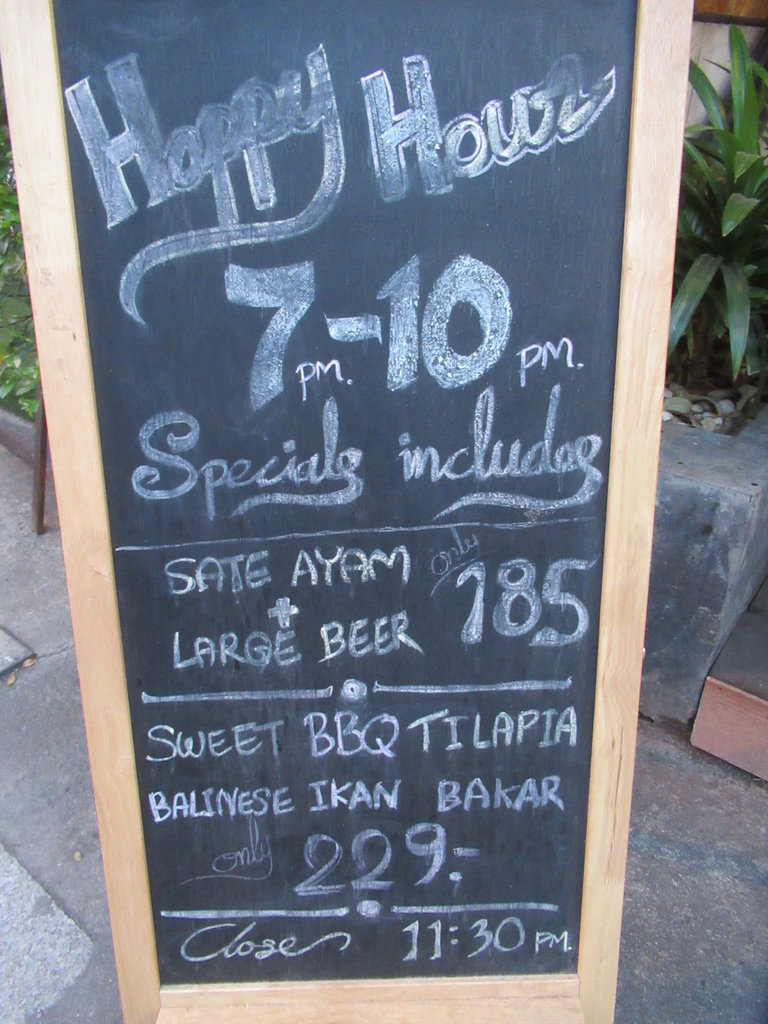 Happy Hour
7 PM. - 10 PM.
Specials includes
SATE AYAM only 185
+
LARGE BEER
SWEET BBQ TILAPIA
BALINESE IKAN BAKAR
only 229.-
Close 11:30 PM.